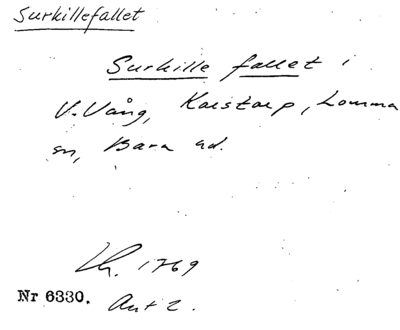 Surkillefallet
Surkille fallet i
V. Vång, Karstorp, Lomma
sn, Bara hd.
Lh. 1769
Nr 6330. Akt 2.